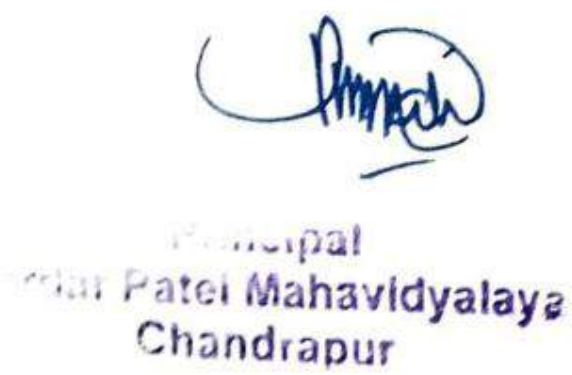 Principal
Patel Mahavidyalaya
Chandrapur